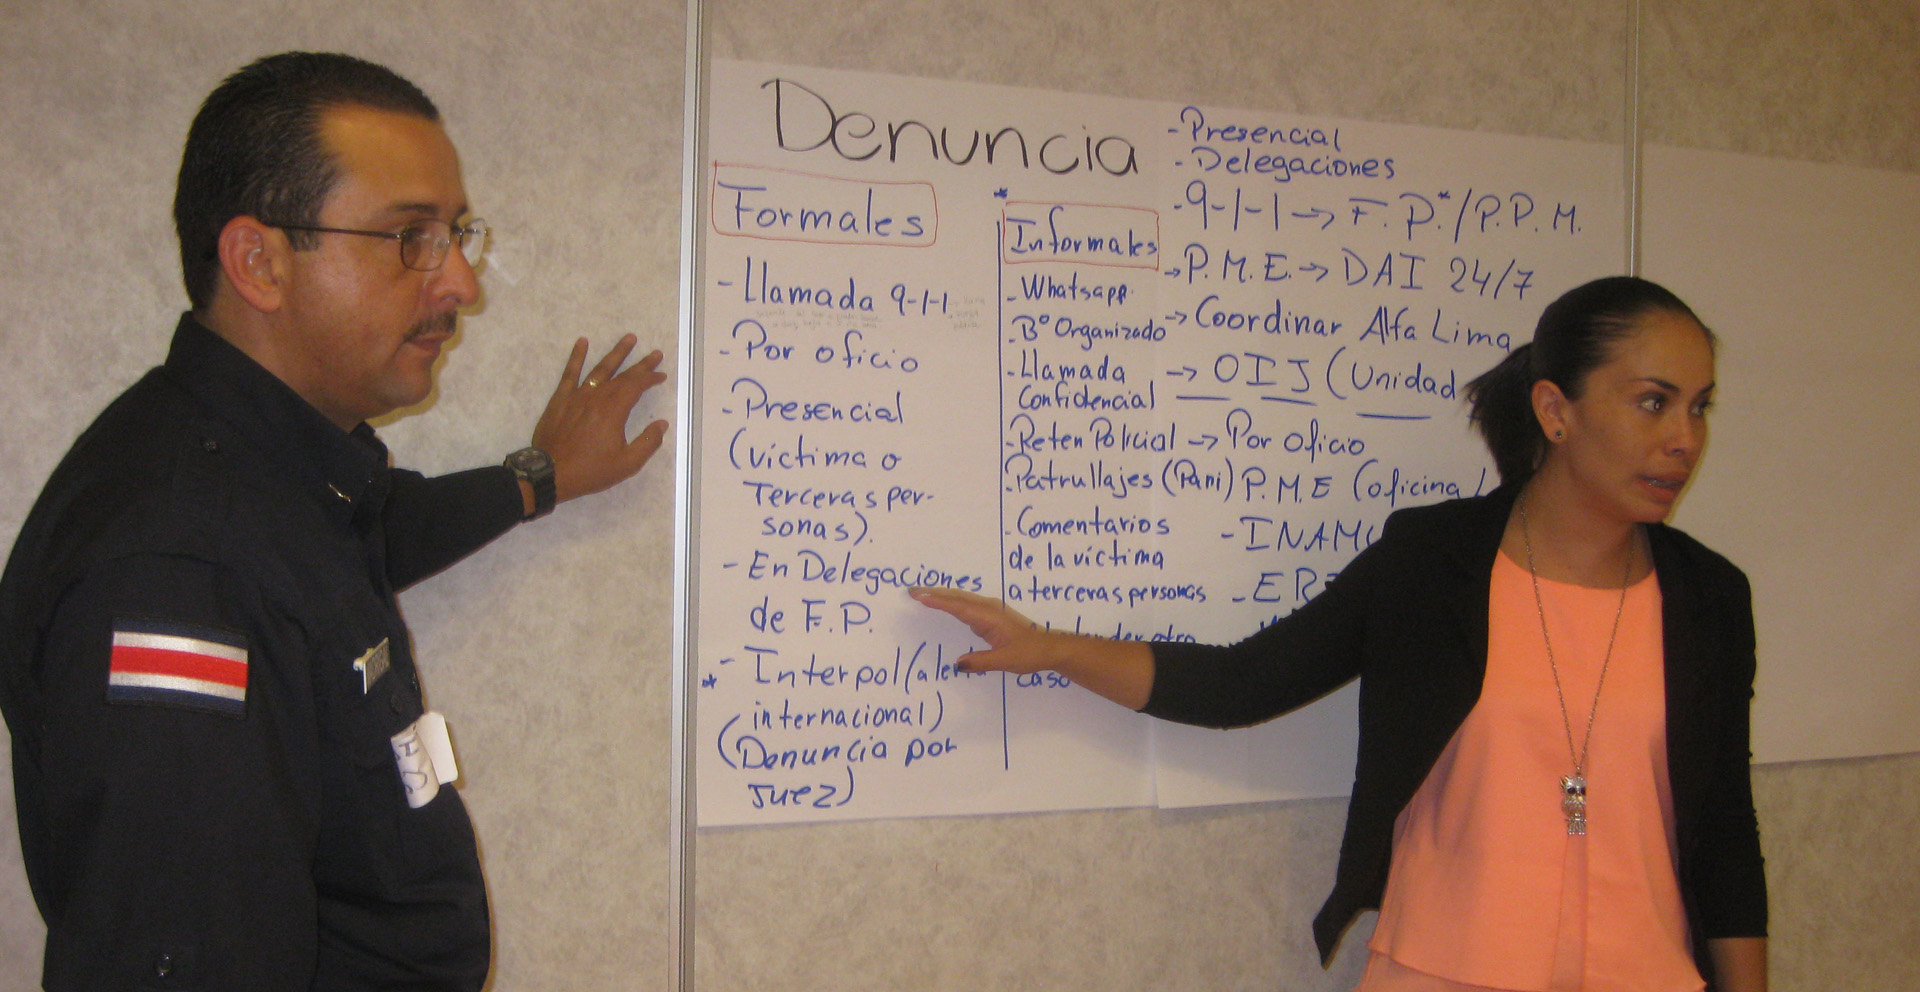 Denuncia
Formales
- Llamada 9-1-1
- Por oficio
- Presencial
(víctima o
Terceras per-
sonas).
- En Delegaciones
de F.P.
* - Interpol (alerta
internacional)
(Denuncia por
Juez)
*
Informales
- Whatsapp.
- Bº Organizado
- Llamada
Confidencial
- Reten Policial
- Patrullajes (Pani)
- Comentarios
de la víctima
a terceras personas
otro
caso
- Presencial
- Delegaciones
- 9-1-1 → F.P.* / P.P.M.
→ P.M.E. → DAI 24/7
→ Coordinar Alfa Lima
→ OIJ (Unidad
→ Por oficio
P.M.E (oficina